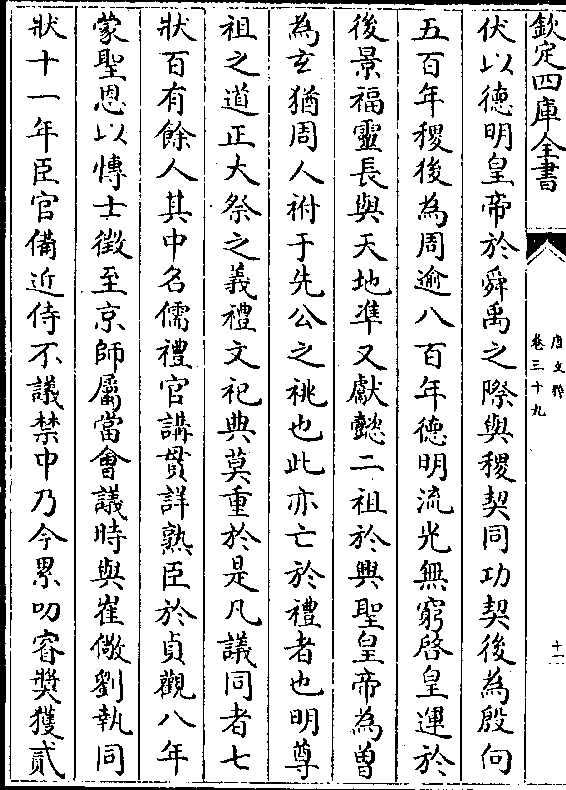 欽定四庫全書
唐文粹
卷三十九
十一
伏以德明皇帝於舜禹之際與稷契同功契後為殷向
五百年稷後為周逾八百年德明流光無窮啓皇運於
後景福靈長與天地準又獻懿二祖於興聖皇帝為曽
為玄猶周人祔于先公之祧也此亦亡於禮者也明尊
祖之道正大祭之義禮文祀典莫重於是凡議同者七
狀百有餘人其中名儒禮官講貫詳熟臣於貞觀八年
蒙聖恩以慱士徴至京師屬當會議時與崔儆劉執同
狀十一年臣官備近侍不議禁中乃今累叨睿奬獲貳